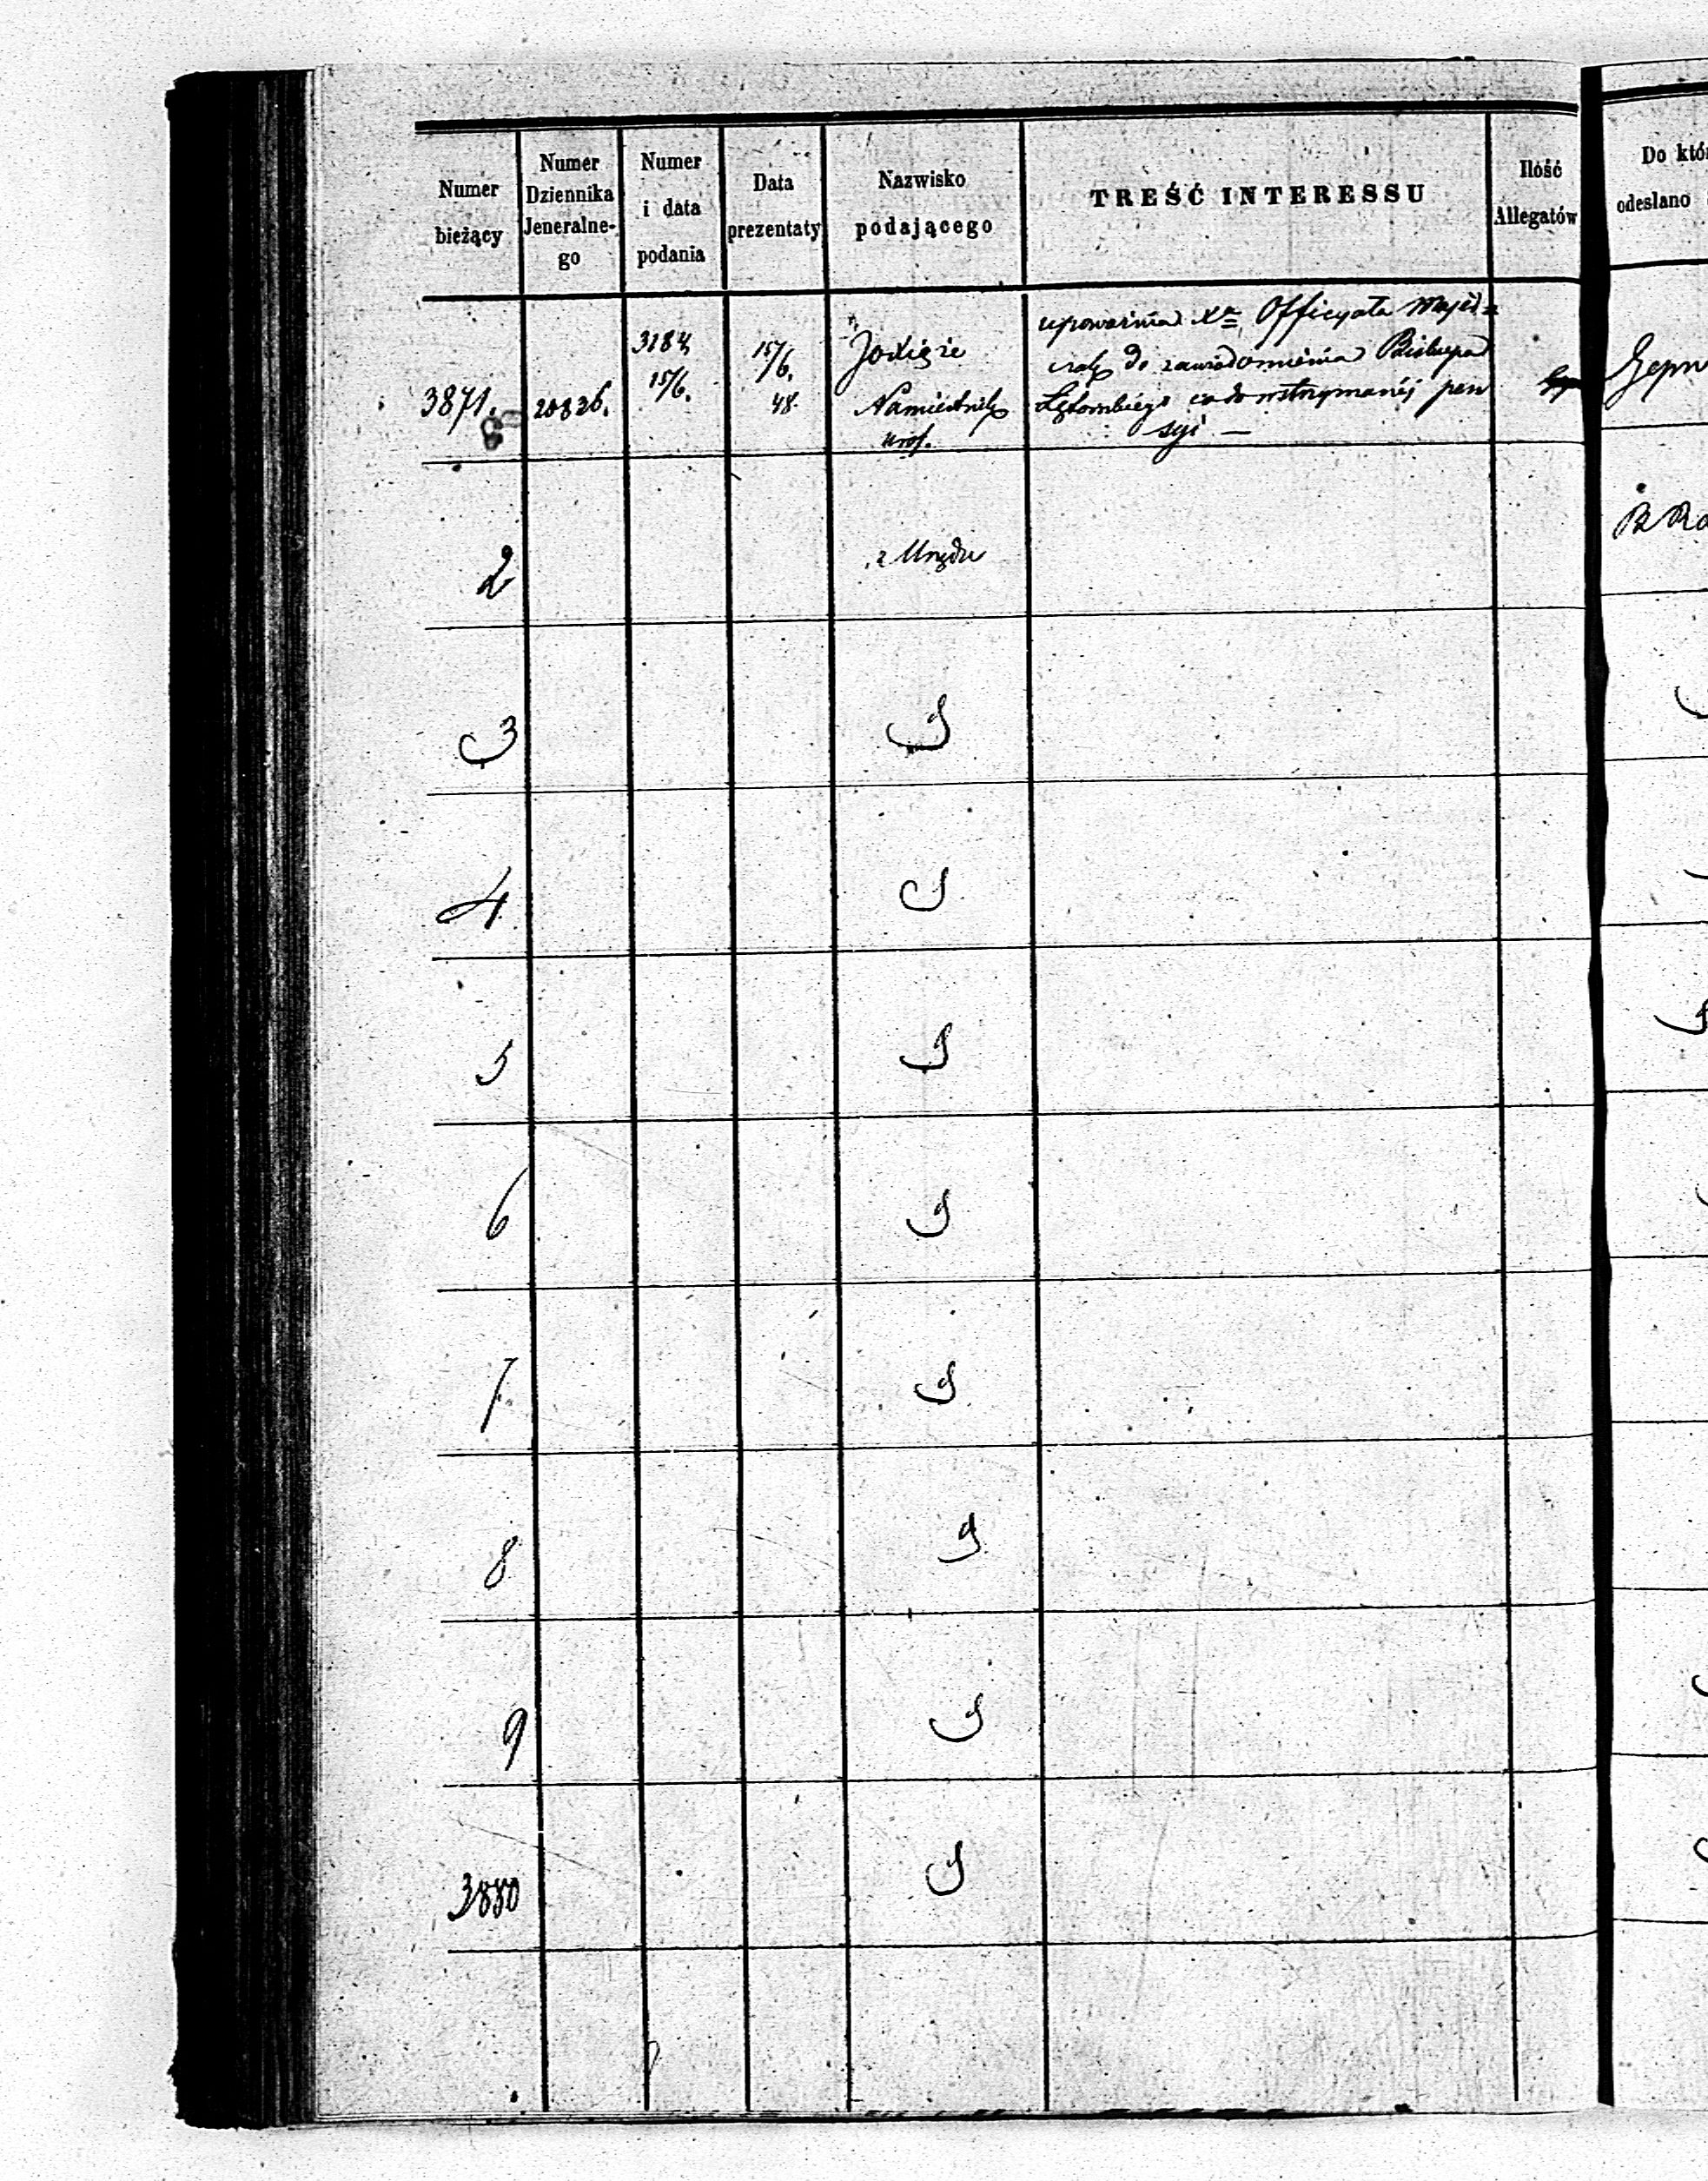 Numer
bieżący
Numer
Dziennika
Jeneralne-
go
Numer
i data
podania
Data
prezentaty
Nazwisko
podającego
TREŚĆ INTERESSU
Ilość
Allegatów
Do któ
odesłano
3871.
20826.
3184
15/6.
15/6.
48
Namiestnik
upoważnia Xa Officyała
do zawiadomienia Biskupa
Łętowskiego co do wstrzymanéj pen
syi —
2
z Urzędu
3
4
5
6
7
8
9
3880